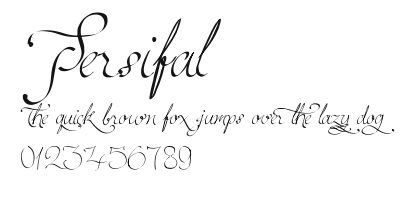 Persifal
The quick brown fox jumps over the lazy dog.
0123456789